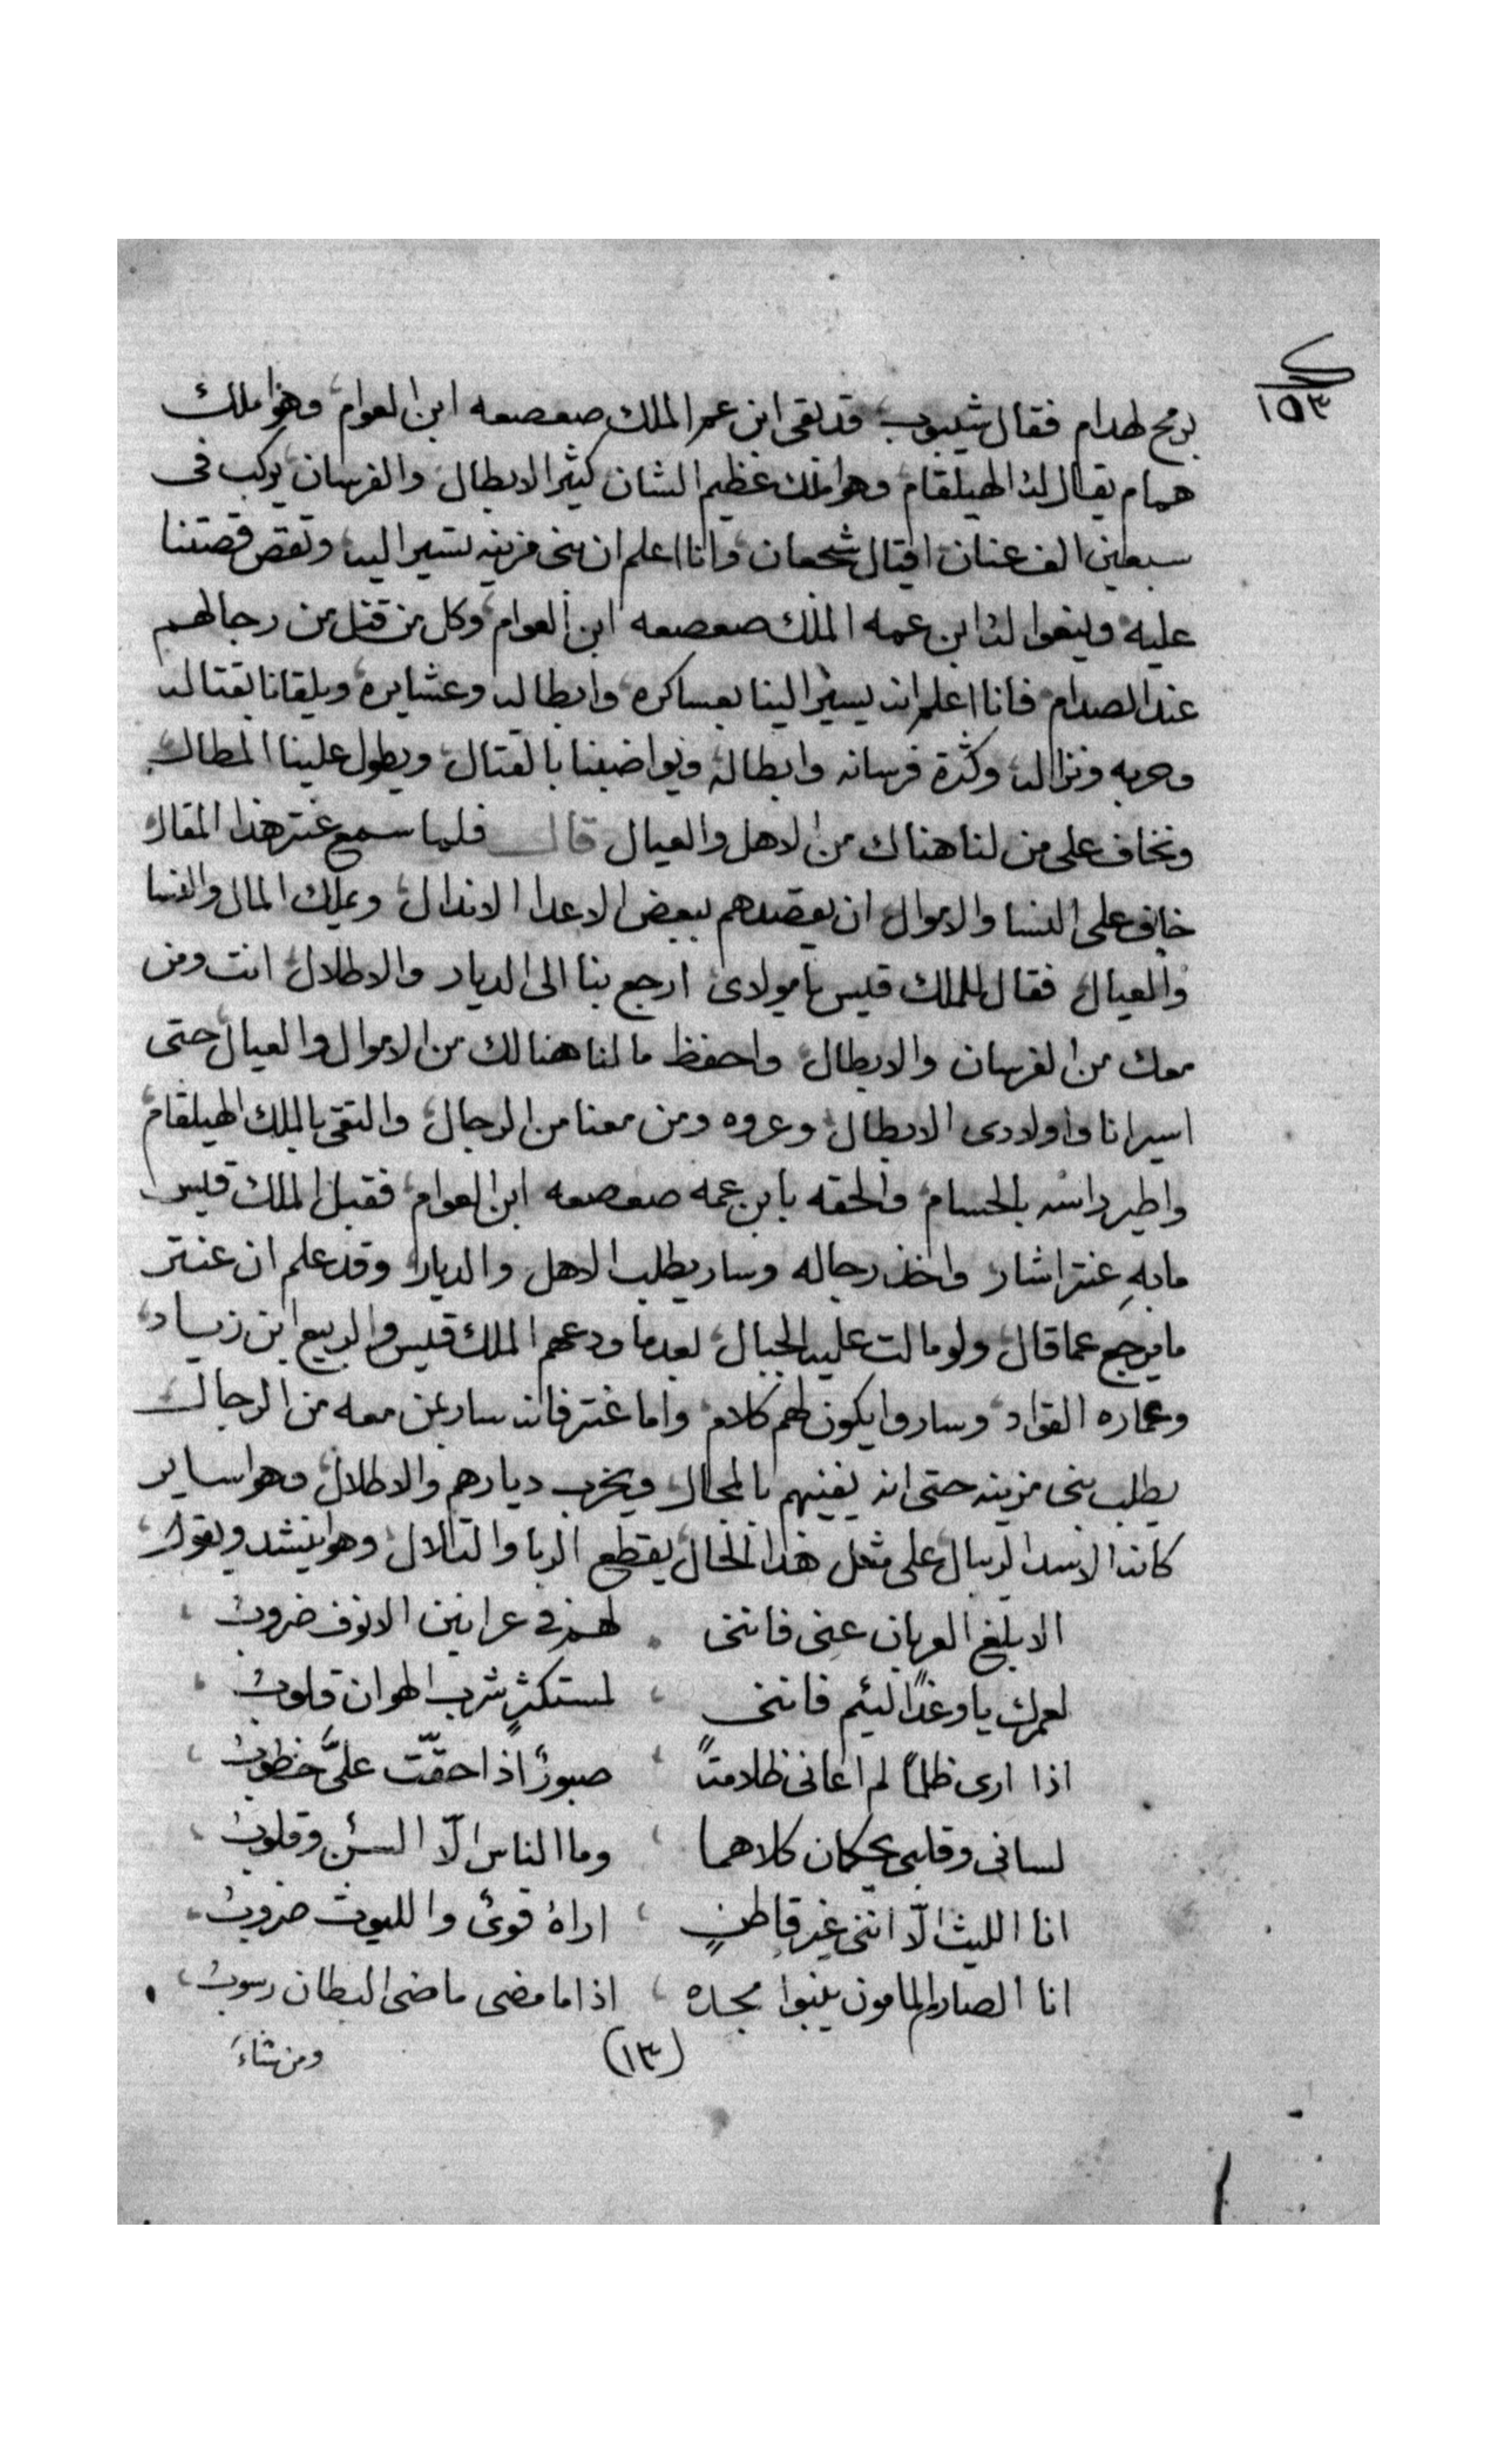 ١٥٣
برمح لهدام فقال شيبوب قد بقى ابن عم الملك صعصعه ابن العوام وهو املك
همام يقال له الهيلقام وهو املك عظيم الشان كثير الابطال والفرسان يركب فى
سبعين الف عنان اقيال شجعان وانا اعلم ان بنى مزينه تسير اليه وتقص قصتنا
عليه وينعوا له ابن عمه الملك صعصعه ابن العوام وكل من قتل من رجالهم
عند الصدام فانا اعلم انه يسير الينا بعساكره وابطاله وعشايره ويلقانا بقتاله
وحربه ونزاله وكثرة فرسانه وابطاله ويواضبنا بالقتال ويطول علينا المطال
ونخاف على من لنا هناك من الاهل والعيال قال فلما سمع عنتر هذا المقال
خاف على النسا والاموال ان يقصدهم بعض الاعدا الاندال ويملك المال والنسا
والعيال فقال للملك قيس يا مولاى ارجع بنا الى الديار والاطلال انت ومن
معك من الفرسان والابطال واحفظ ما لنا هنالك من الاموال والعيال حتى
اسير انا واولادى الابطال وعروه ومن معنا من الرجال والتقى بالملك الهيلقام
واطير راسه بالحسام والحقه بابن عمه صعصعه ابن العوام فقبل الملك قيس
مابهِ عنتر اشار واخذ رجاله وسار يطلب الاهل والديار وقد علم ان عنتر
ما يرجع عما قال ولو مالت عليه الجبال بعدما ودعهم الملك قيس والربيع ابن زياد
وعماره القواد وساروا يكون لهم كلام واما عنتر فانه سار بمن معه من الرجال
يطلب بنى مزينه حتى انه يفنيهم بالمجال ويخرب ديارهم والاطلال وهو اساير
كانه الاسد الريبال على مثل هذا الحال يقطع الربا والتلال وهو ينشد ويقول
الا بلغ العربان عنى فاننى لهم فى عرانين الانوف ضروب
لعمرك يا وغدًا لئيم فاننى لمستكثرٍ شرب الهوان قلوب
اذا ارى ظلمًا لم اعانى ظلامتةً صبورٌ اذا حقّت علىَّ خطوب
لسانى وقلبى يحكمان كلاهما وما الناس الّا السنٌ وقلوب
انا الليث الّا اننى غير قاطنٍ اراهُ قوىٌ والليوث ضروب
انا الصارم المامون ينبوا مجده اذا ما مضى ماضى البطان رسوب
(١٣)
ومن شاءَ